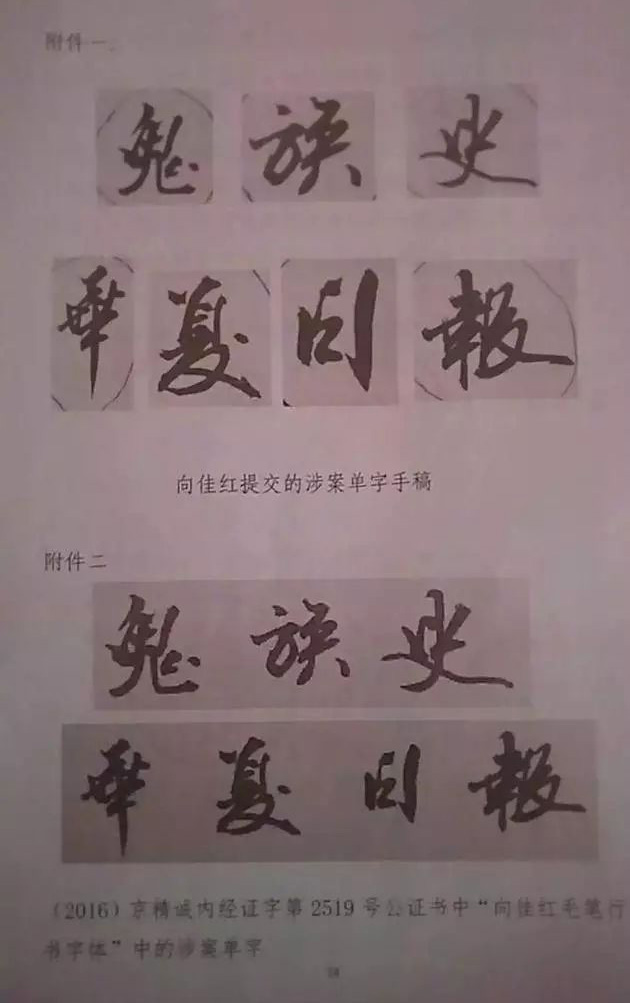 附件一:
鬼 族 史
華 夏 日 報
向佳红提交的涉案单字手稿
附件二
鬼 族 史
華 夏 日 報
(2016)京精诚内经证字第2519号公证书中“向佳红毛笔行
书字体”中的涉案单字